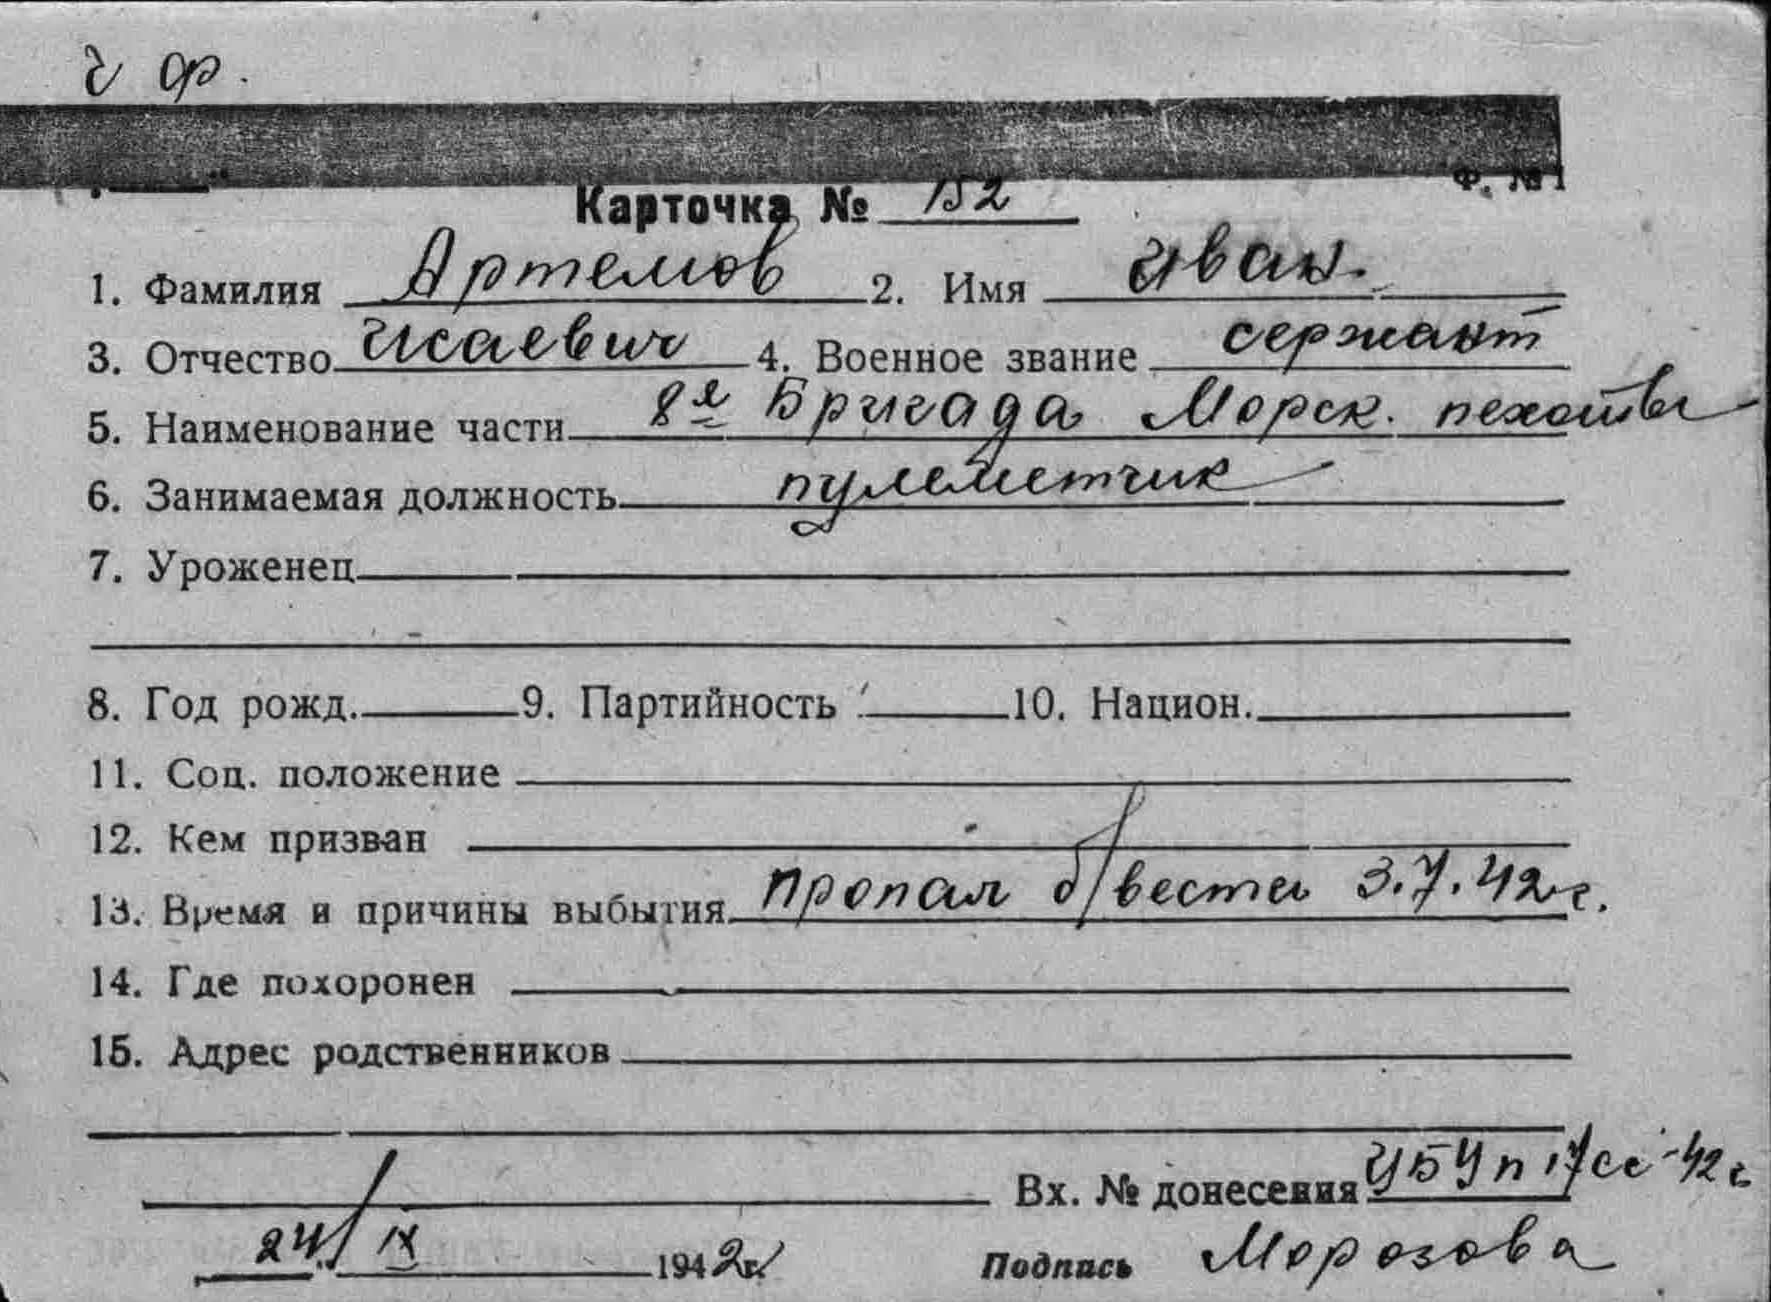 ч ф.
Ф. № 1
Карточка № 152
1. Фамилия Артемов 2. Имя Иван.
3. Отчество Исаевич 4. Военное звание сержант
5. Наименование части 8я Бригада Морск. пехоты
6. Занимаемая должность пулеметчик
7. Уроженец
8. Год рожд. 9. Партийность 10. Национ.
11. Соц. положение
12. Кем призван
13. Время и причины выбытия пропал б/вести 3.7.42 г.
14. Где похоронен
15. Адрес родственников
Вх. № донесения 42 г
24/IX 1942 г.
Подпись Морозова